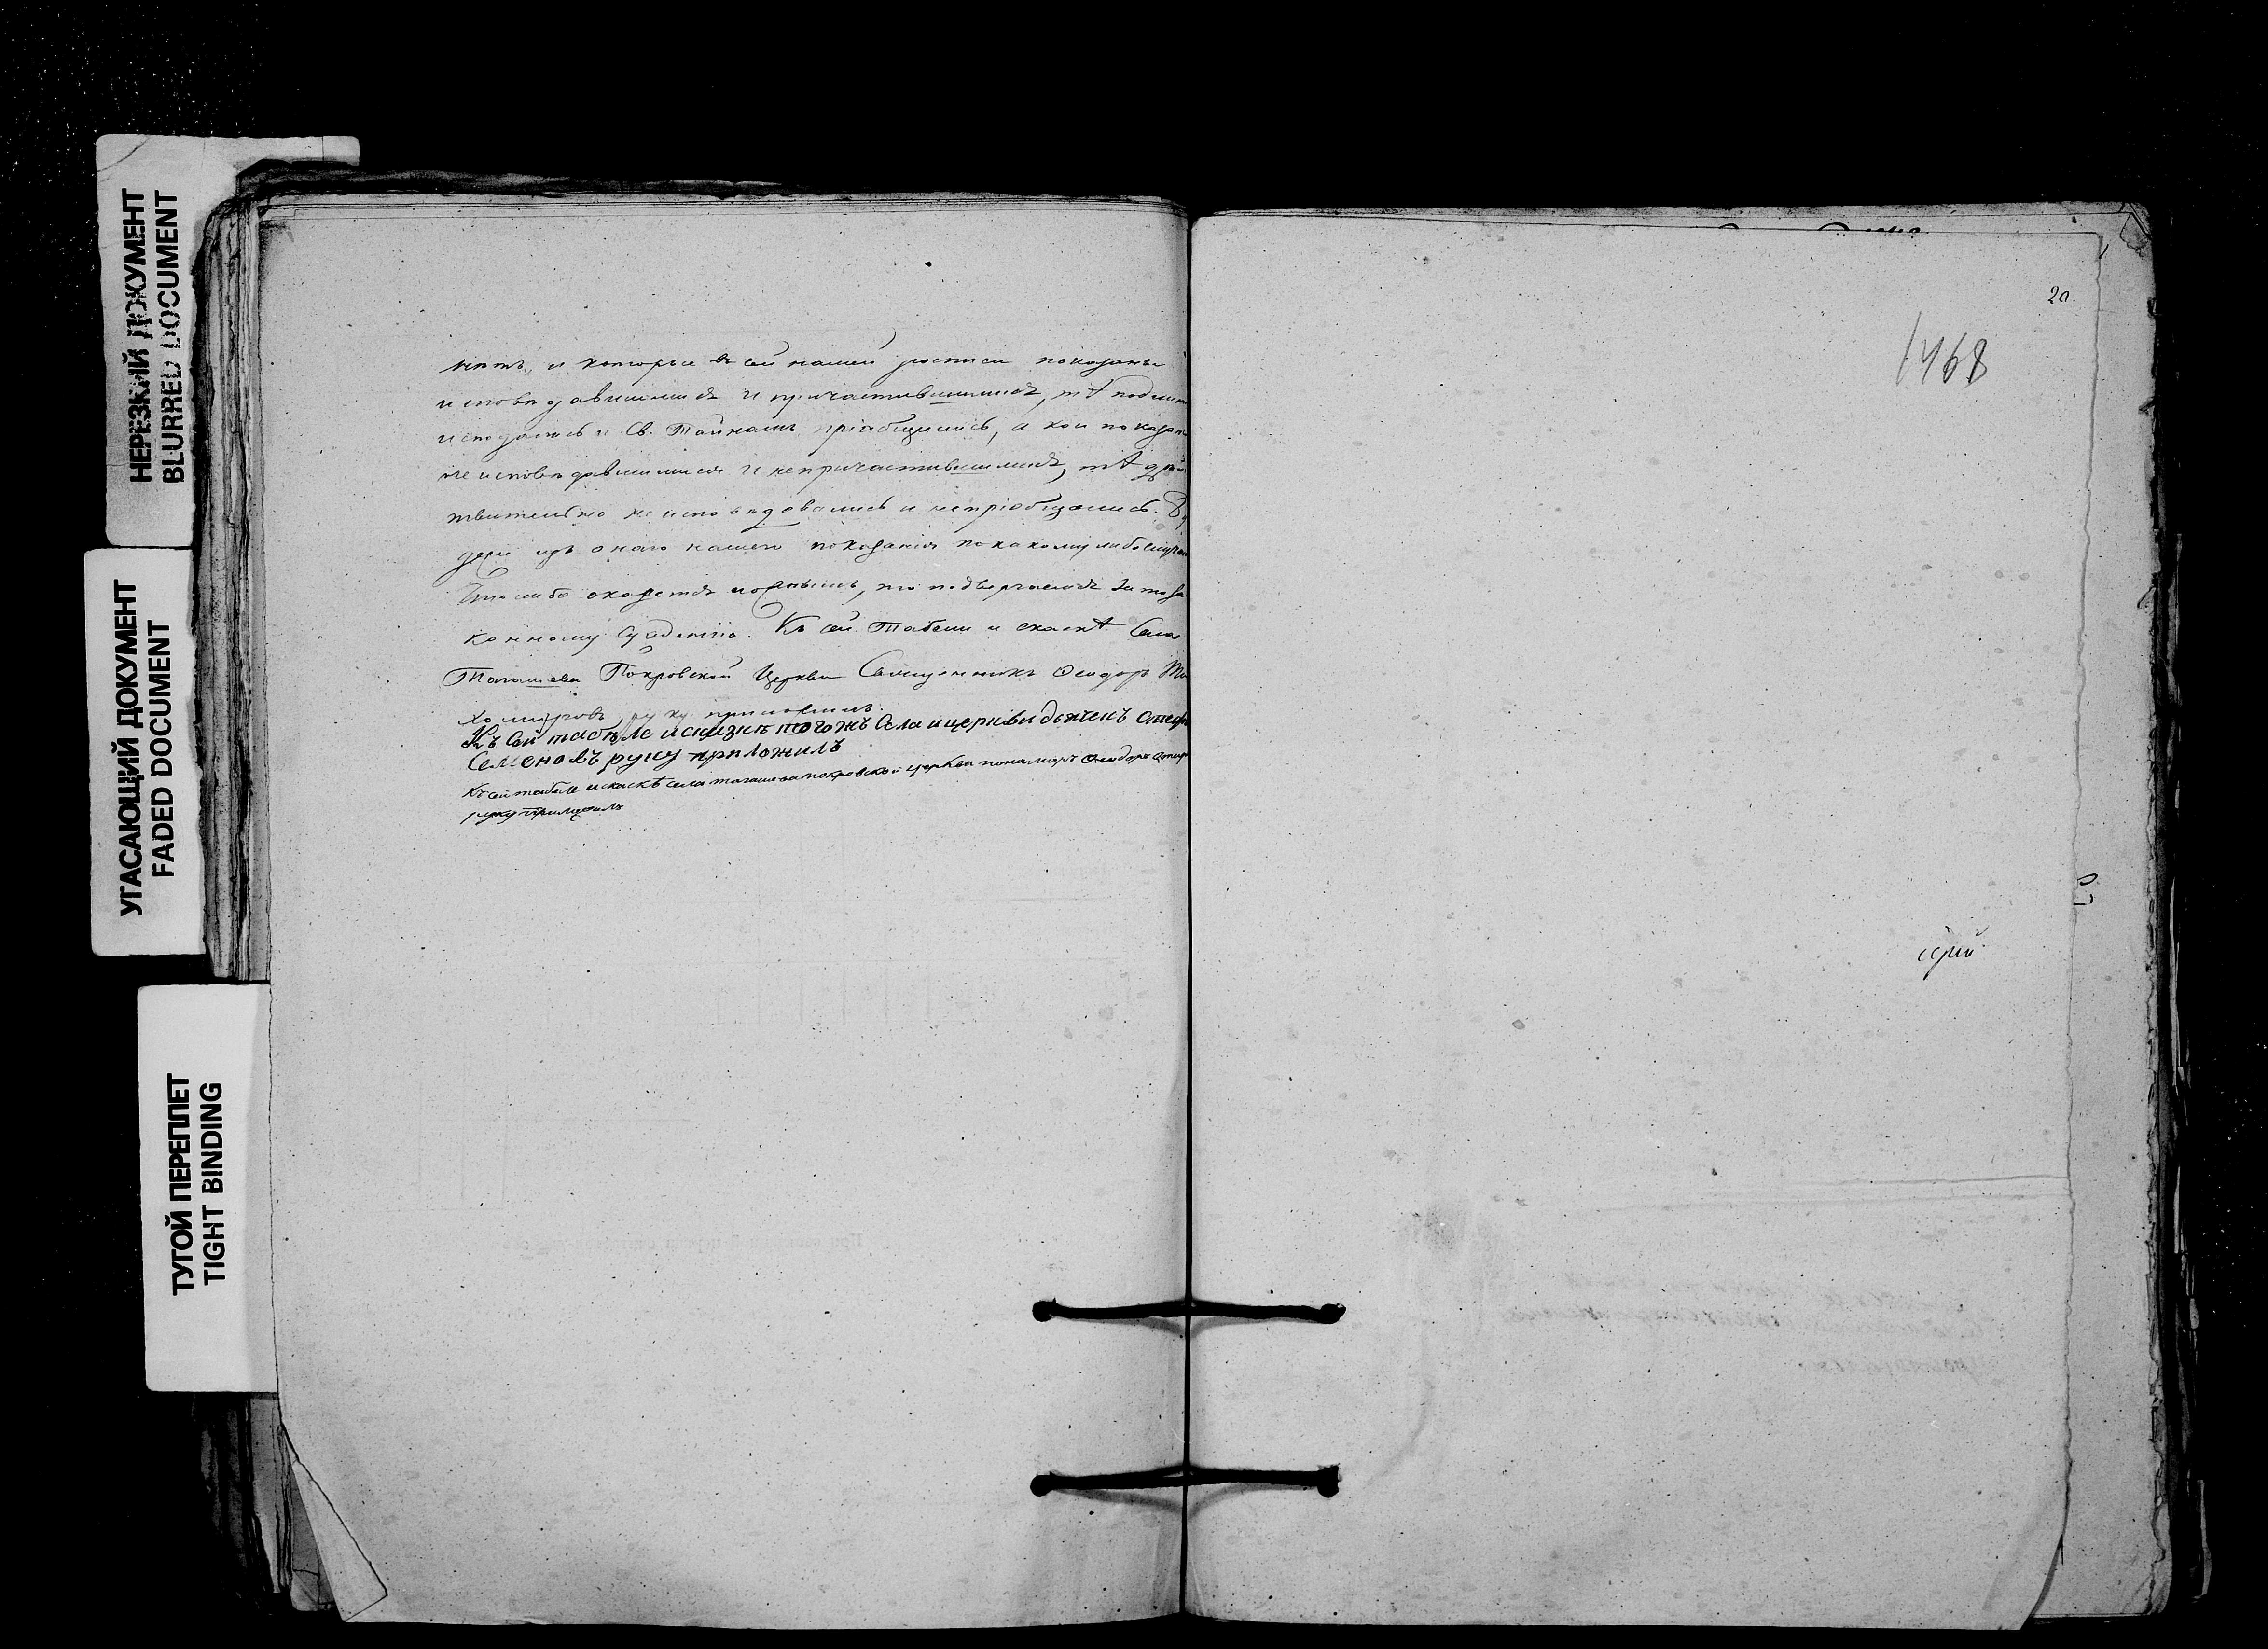 НЕРЕЗКИЙ ДОКУМЕНТ
BLURRED DOCUMENT
УГАСАЮЩИЙ ДОКУМЕНТ
FADED DOCUMENT
ТУГОЙ ПЕРЕПЛЕТ
TIGHT BINDING
нѣтъ, и которые въ сей нашей росписи показаны
исповѣдавшимися и причастившимися, тѣ
и Св. Тайнамъ пріобщились, а кои показаны
не исповѣдавшимися и непричастившимися, тѣ дѣй
ствительно не исповѣдовались и непріобщались.
нашего показанія по какому либо
что либо окажется ложнымъ, то подвергаемся за то за
конному сужденію. Къ сей табели и скаскѣ Села
Тагашева Покровской Церкви Священникъ Ѳеодоръ Ти
хомировъ руку приложилъ.
Къ сей табѣле и скаскѣ тогожъ Села и церкви дьячекъ Стеф
Семеновъ руку приложилъ
Къ сей табеле и скаскѣ села тагашева покровской церкви пономарь Ѳеодоръ
руку приложилъ
20.
1468